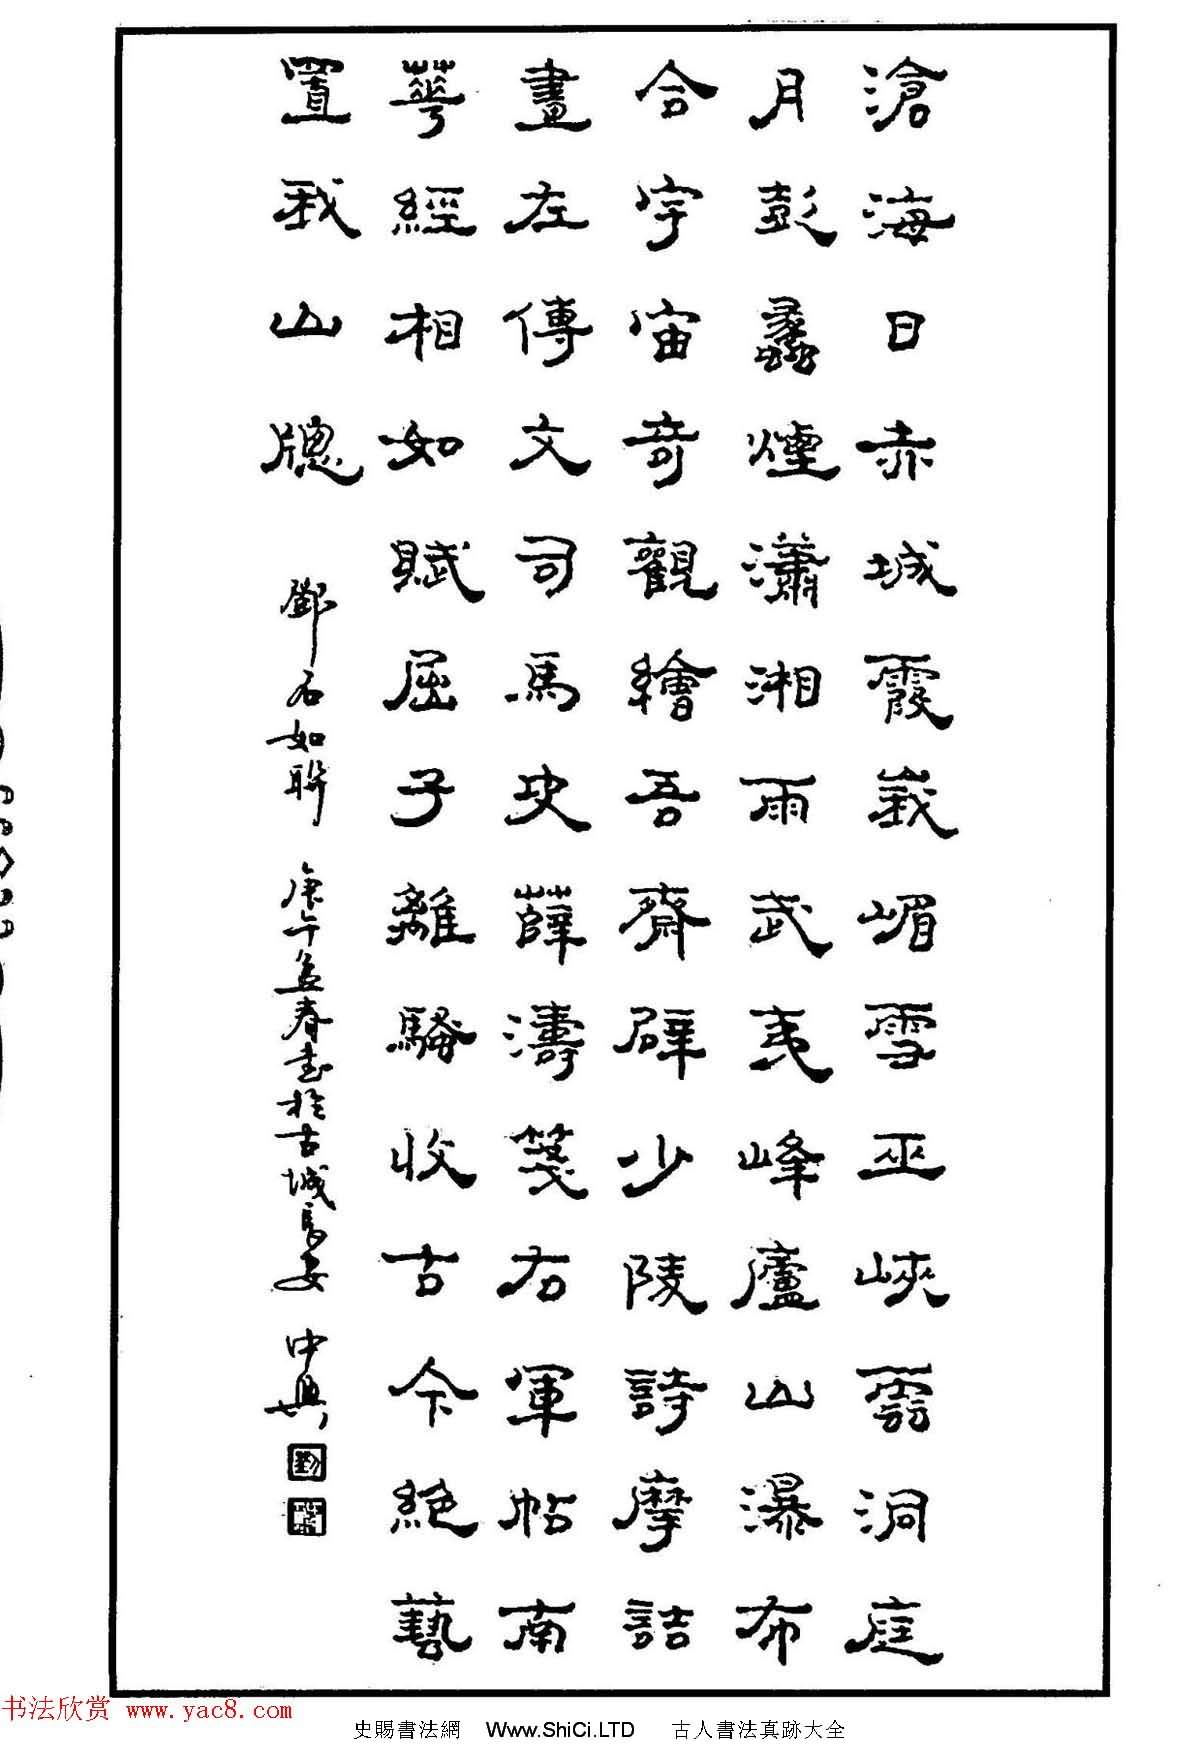 滄海日赤城霞峩嵋雪巫峽雲洞庭
月彭蠡煙瀟湘雨武夷峰廬山瀑布
合宇宙奇觀繪吾齋壁少陵詩摩詰
畫左傳文司馬史薛濤箋右軍帖南
華經相如賦屈子離騷收古今絕藝
置我山牕
鄧石如聯 庚午孟春書於古城長安 中興
书法欣赏 www.yac8.com
史賜書法網 Www.ShiCi.LTD 古人書法真跡大全